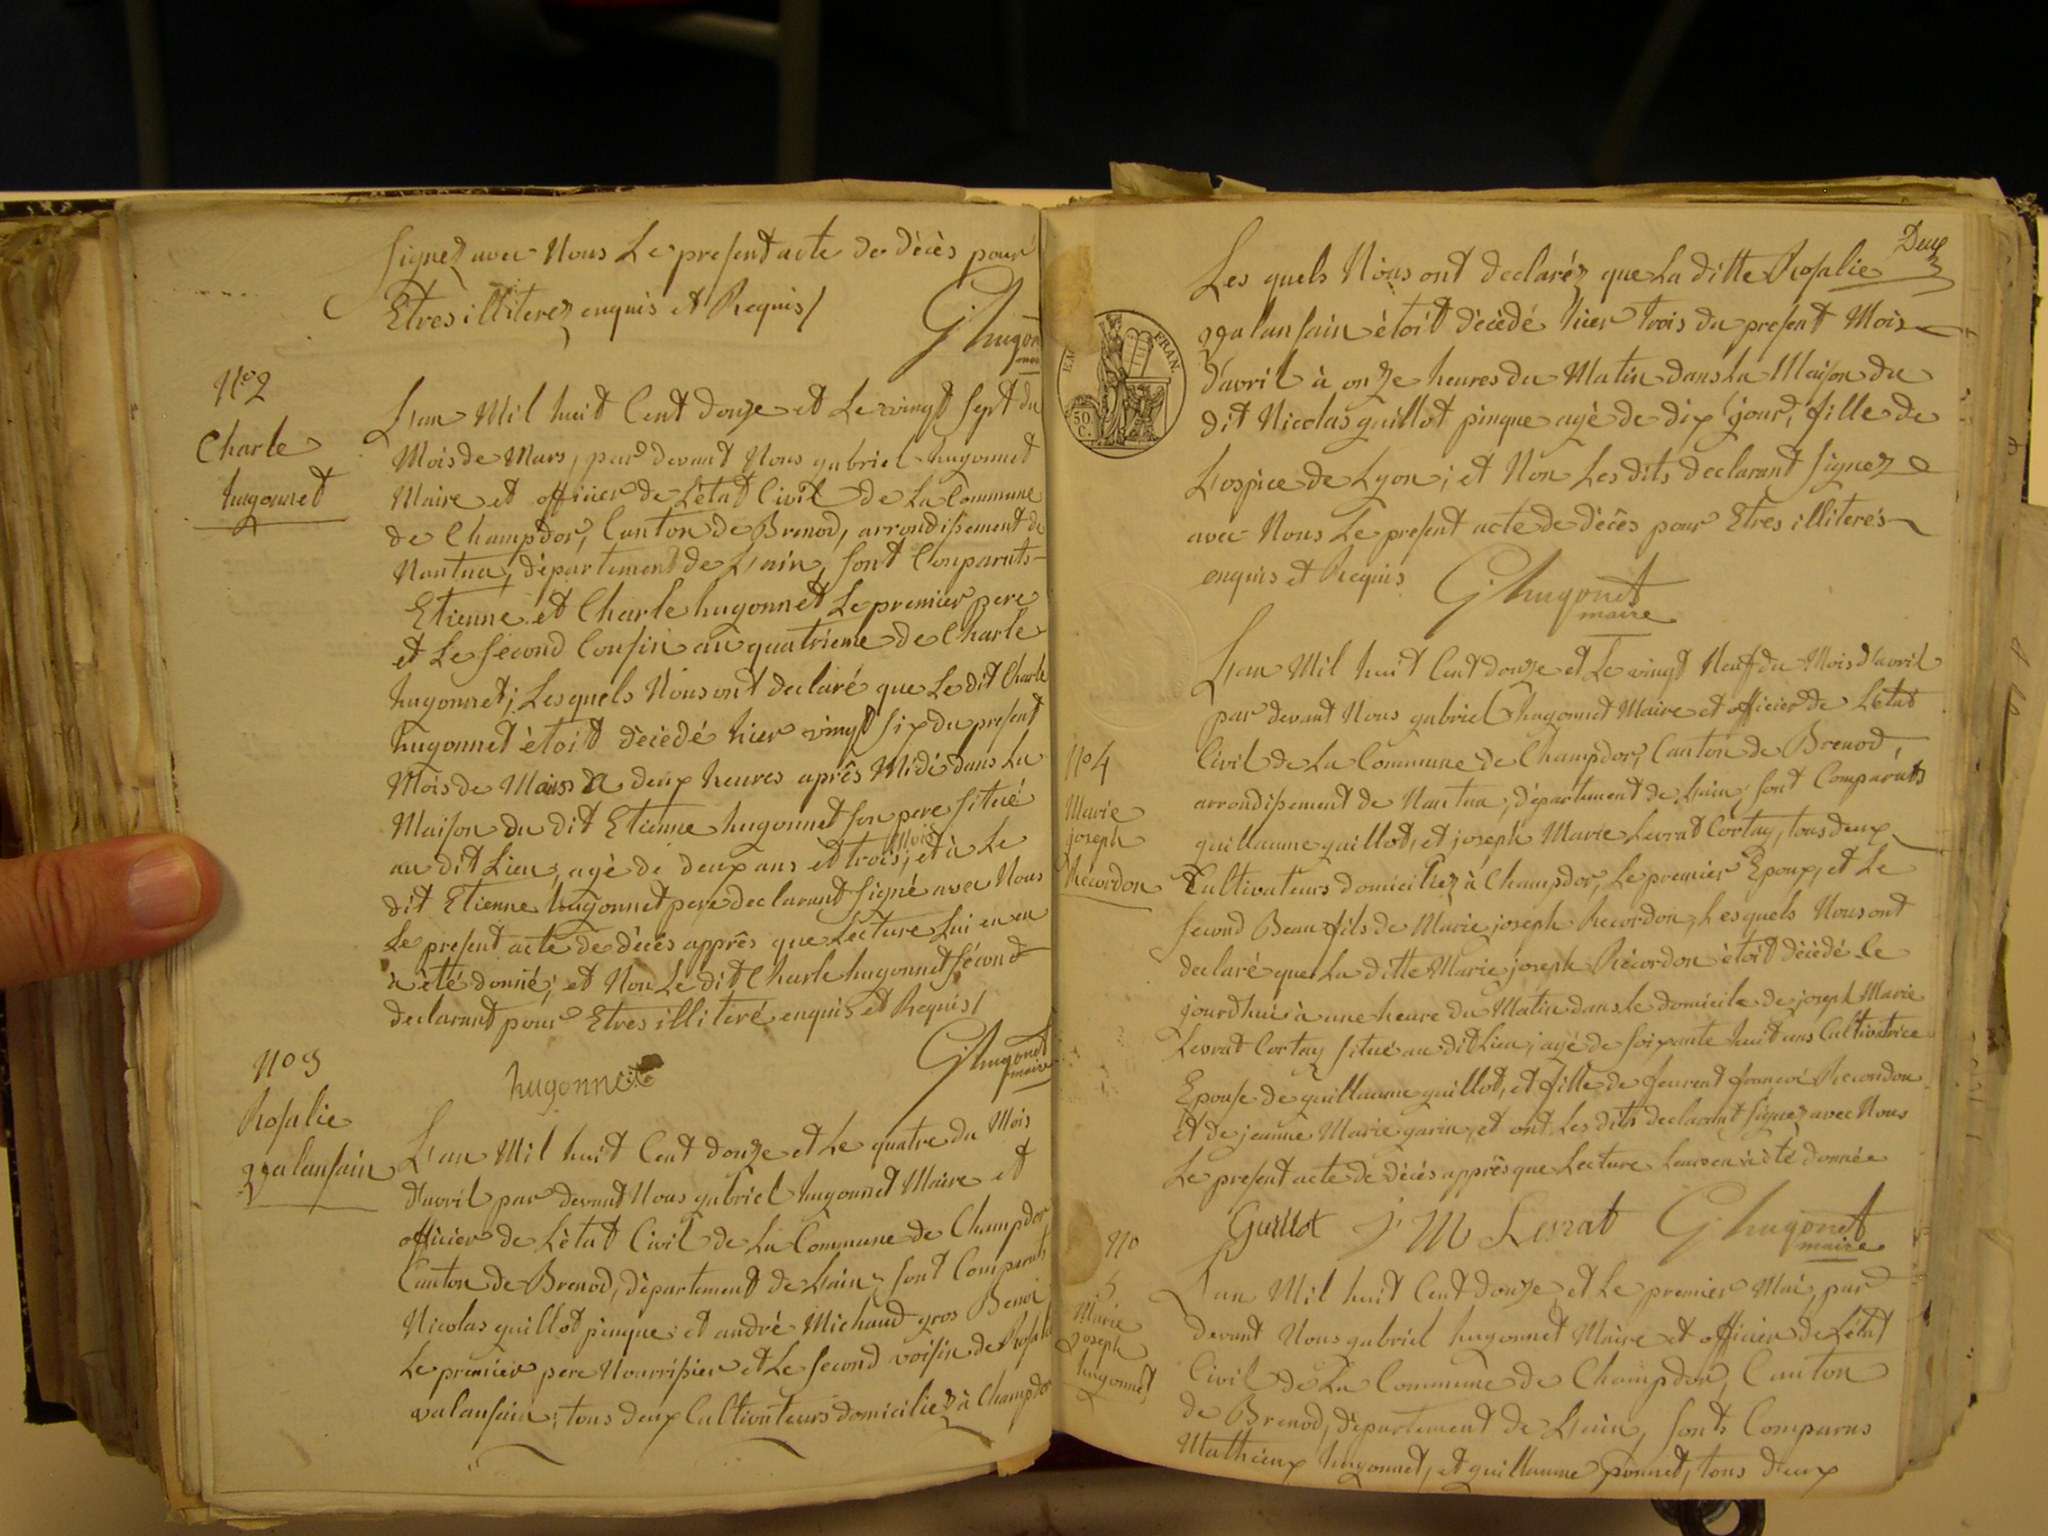 signez avec Nous Le present acte de décès pour
Etres illiterez enquis et Requis /
G. hugon
N° 2
Charle
hugonnet
L'an Mil huit Cent douze et Le vingt sept du
Mois de Mars, par devant Nous gabriel hugonnet
Maire et officier de L'état Civil de La Commune
de Champdor, Canton de Brenod, arrondissement de
Nantua, département de L'ain, sont Comparuts
Etienne et Charle hugonnet Le premier pere
et Le second Cousin au quatrieme de Charle
hugonnet; Lesquels Nous ont declaré que Le dit Charle
hugonnet étoit décédé hier vingt six du present
Mois de Mars à deux heures après Midi dans La
Maison du dit Etienne hugonnet son pere situé
au dit Lieu, agé de deux ans et trois Mois, et à Le
dit Etienne hugonnet pere declarant signé avec Nous
Le present acte de décès apprès que Lecture Lui en en
à été donné; et Non Le dit Charle hugonnet sécond
declarant pour Etres illiteré enquis et Requis /
hugonnet
G. hugonet
maire
N° 3
Rosalie
Valansain
L'an Mil huit Cent douze et Le quatre du Mois
d'avril par devant Nous gabriel hugonnet Maire et
officier de L'état Civil de La Commune de Champdor
Canton de Brenod, département de L'ain, sont Comparuts
Nicolas guillot pinque; et andré Michaud gros Benoi
Le premier pere Nourrissier et Le second voisin de Rosalie
valansain; tous deux Cultivateurs domiciliez à Champdor
Deux
EM
FRAN.
50
C.
Les quels Nous ont declaréz que La ditte Rosalie
Valansain étoit décédé hier trois du present Mois
d'avril à onze heures du Matin dans La Maison du
dit Nicolas guillot pinque agé de dix jour, fille de
L'ospice de Lyon; et Non Les dits declarant signez
avec Nous Le present acte de décês pour Etres illiterés
enquis et Requis
G. hugonet
maire
N° 4
Marie
joseph
Récordon
L'an Mil huit Cent douze et Le vingt Neuf du Mois d'avril
par devant Nous gabriel hugonnet Maire et officier de L'état
Civil de La Commune de Champdor, Canton de Brenod,
arrondissement de Nantua, département de L'ain, sont Comparuts
guillaume guillot, et joseph Marie Levrat Cortay, tous deux
Cultivateurs domiciliez à Champdor, Le premier Epoux, et Le
second Beau fils de Marie joseph Recordon, Lesquels Nous ont
declaré que La ditte Marie joseph Récordon étoit décédé le
jourd'hui à une heure du Matin dans Le domicile de joseph Marie
Levrat Cortay situé au dit Lieu, agé de soixante huit ans Cultivatrice
Epouse de guillaume guillot, et fille de feurent françoi Recordon
et de jeanne Marie garin, et ont Les dits declarant signez avec Nous
Le present acte de décés apprês que Lecture Leurs en à été donnée
Guillot J M Levrat G. hugonet
maire
N°
5
Marie
joseph
hugonnet
L'an Mil huit Cent douze et Le premier Mai, par
devant Nous gabriel hugonnet Maire et officier de L'état
Civil de La Commune de Champdor, Canton
de Brenod, département de L'ain, sonts Comparus
Mathieux hugonnet, et guillaume ponnet, tous deux